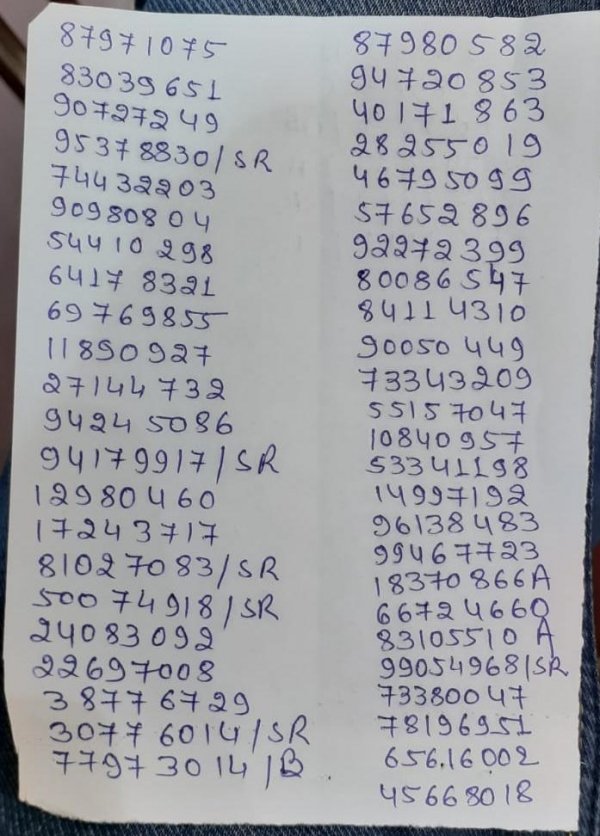 87971075
83039651
90727249
95378830/SR
74432203
90980804
54410298
64178321
69769855
11890927
27144732
94245086
94179917/SR
12980460
17243717
81027083/SR
50074918/SR
24083092
22697008
38776729
30776014/SR
77973014/B
87980582
94720853
40171863
28255019
46795099
57652896
92272399
80086547
84114310
90050449
73343209
55157047
10840957
53341198
14997192
96138483
99467723
18370866A
66724660
83105510 A
99054968/SR
73380047
78196951
65616002
45668018